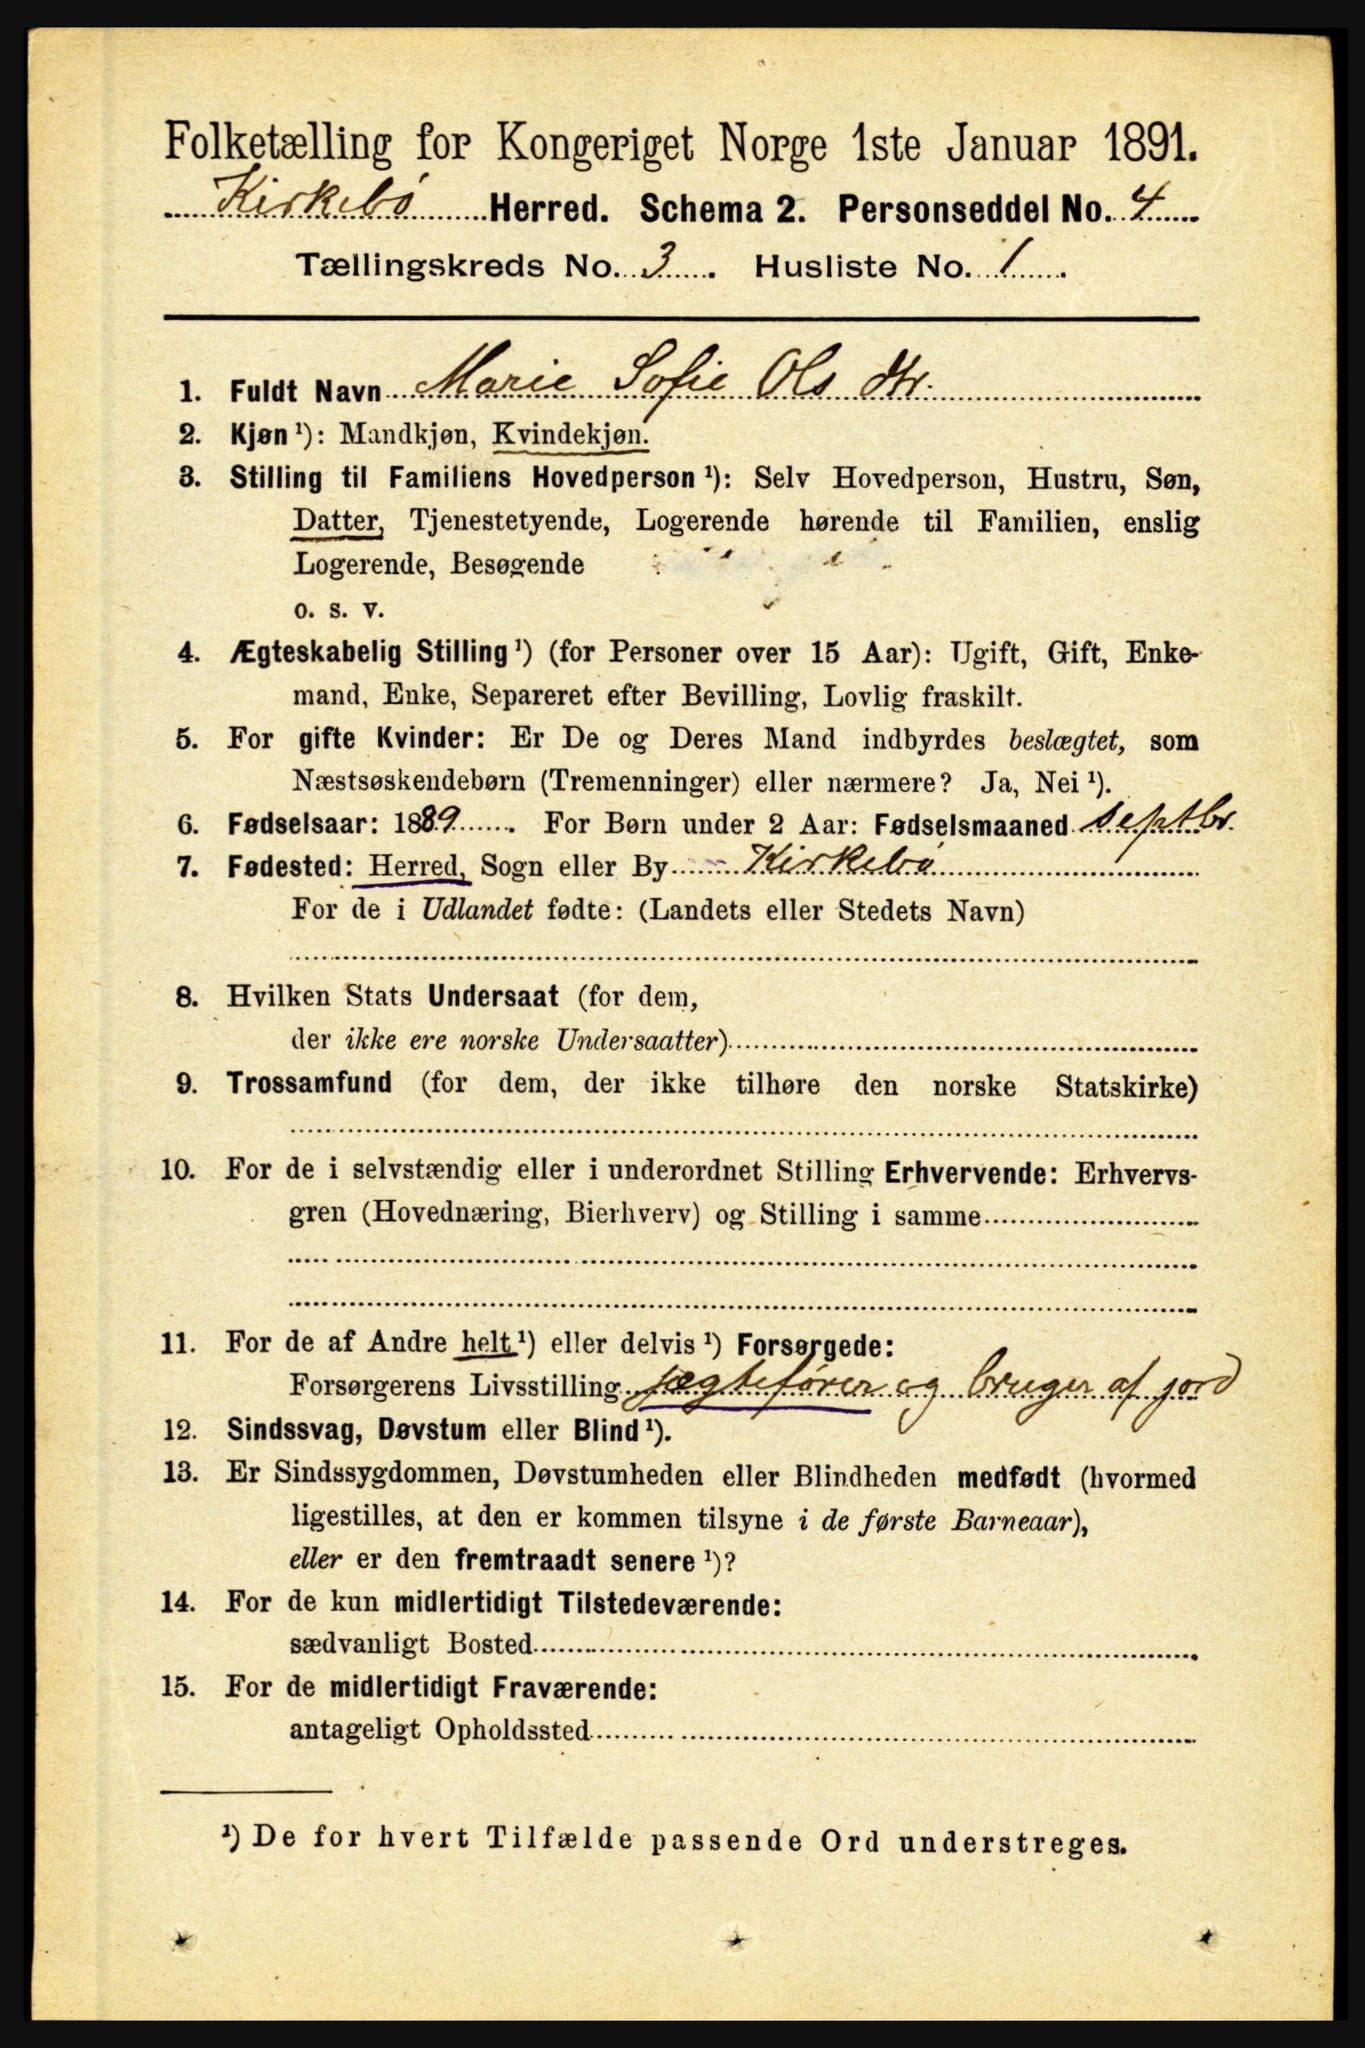 Folketælling for Kongeriget Norge 1ste Januar 1891.
Kirkebø Herred. Schema 2. Personseddel No. 4
Tællingskreds No. 3. Husliste No. 1.
1. Fuldt Navn Marie Sofie Ols dtr.
2. Kjøn ¹): Mandkjøn, Kvindekjøn.
3. Stilling til Familiens Hovedperson ¹): Selv Hovedperson, Hustru, Søn,
Datter, Tjenestetyende, Logerende hørende til Familien, enslig
Logerende, Besøgende
o. s. v.
4. Ægteskabelig Stilling ¹) (for Personer over 15 Aar): Ugift, Gift, Enke-
mand, Enke, Separeret efter Bevilling, Lovlig fraskilt.
5. For gifte Kvinder: Er De og Deres Mand indbyrdes beslægtet, som
Næstsøskendebørn (Tremenninger) eller nærmere? Ja, Nei ¹).
6. Fødselsaar: 1889. For Børn under 2 Aar: Fødselsmaaned septbr.
7. Fødested: Herred, Sogn eller By Kirkebø
For de i Udlandet fødte: (Landets eller Stedets Navn)
8. Hvilken Stats Undersaat (for dem,
der ikke ere norske Undersaatter)
9. Trossamfund (for dem, der ikke tilhøre den norske Statskirke)
10. For de i selvstændig eller i underordnet Stilling Erhvervende: Erhvervs-
gren (Hovednæring, Bierhverv) og Stilling i samme
11. For de af Andre helt ¹) eller delvis ¹) Forsørgede:
Forsørgerens Livsstilling jægtefører og bruger af jord
12. Sindssvag, Døvstum eller Blind ¹).
13. Er Sindssygdommen, Døvstumheden eller Blindheden medfødt (hvormed
ligestilles, at den er kommen tilsyne i de første Barneaar),
eller er den fremtraadt senere ¹)?
14. For de kun midlertidigt Tilstedeværende:
sædvanligt Bosted
15. For de midlertidigt Fraværende:
antageligt Opholdssted
¹) De for hvert Tilfælde passende Ord understreges.